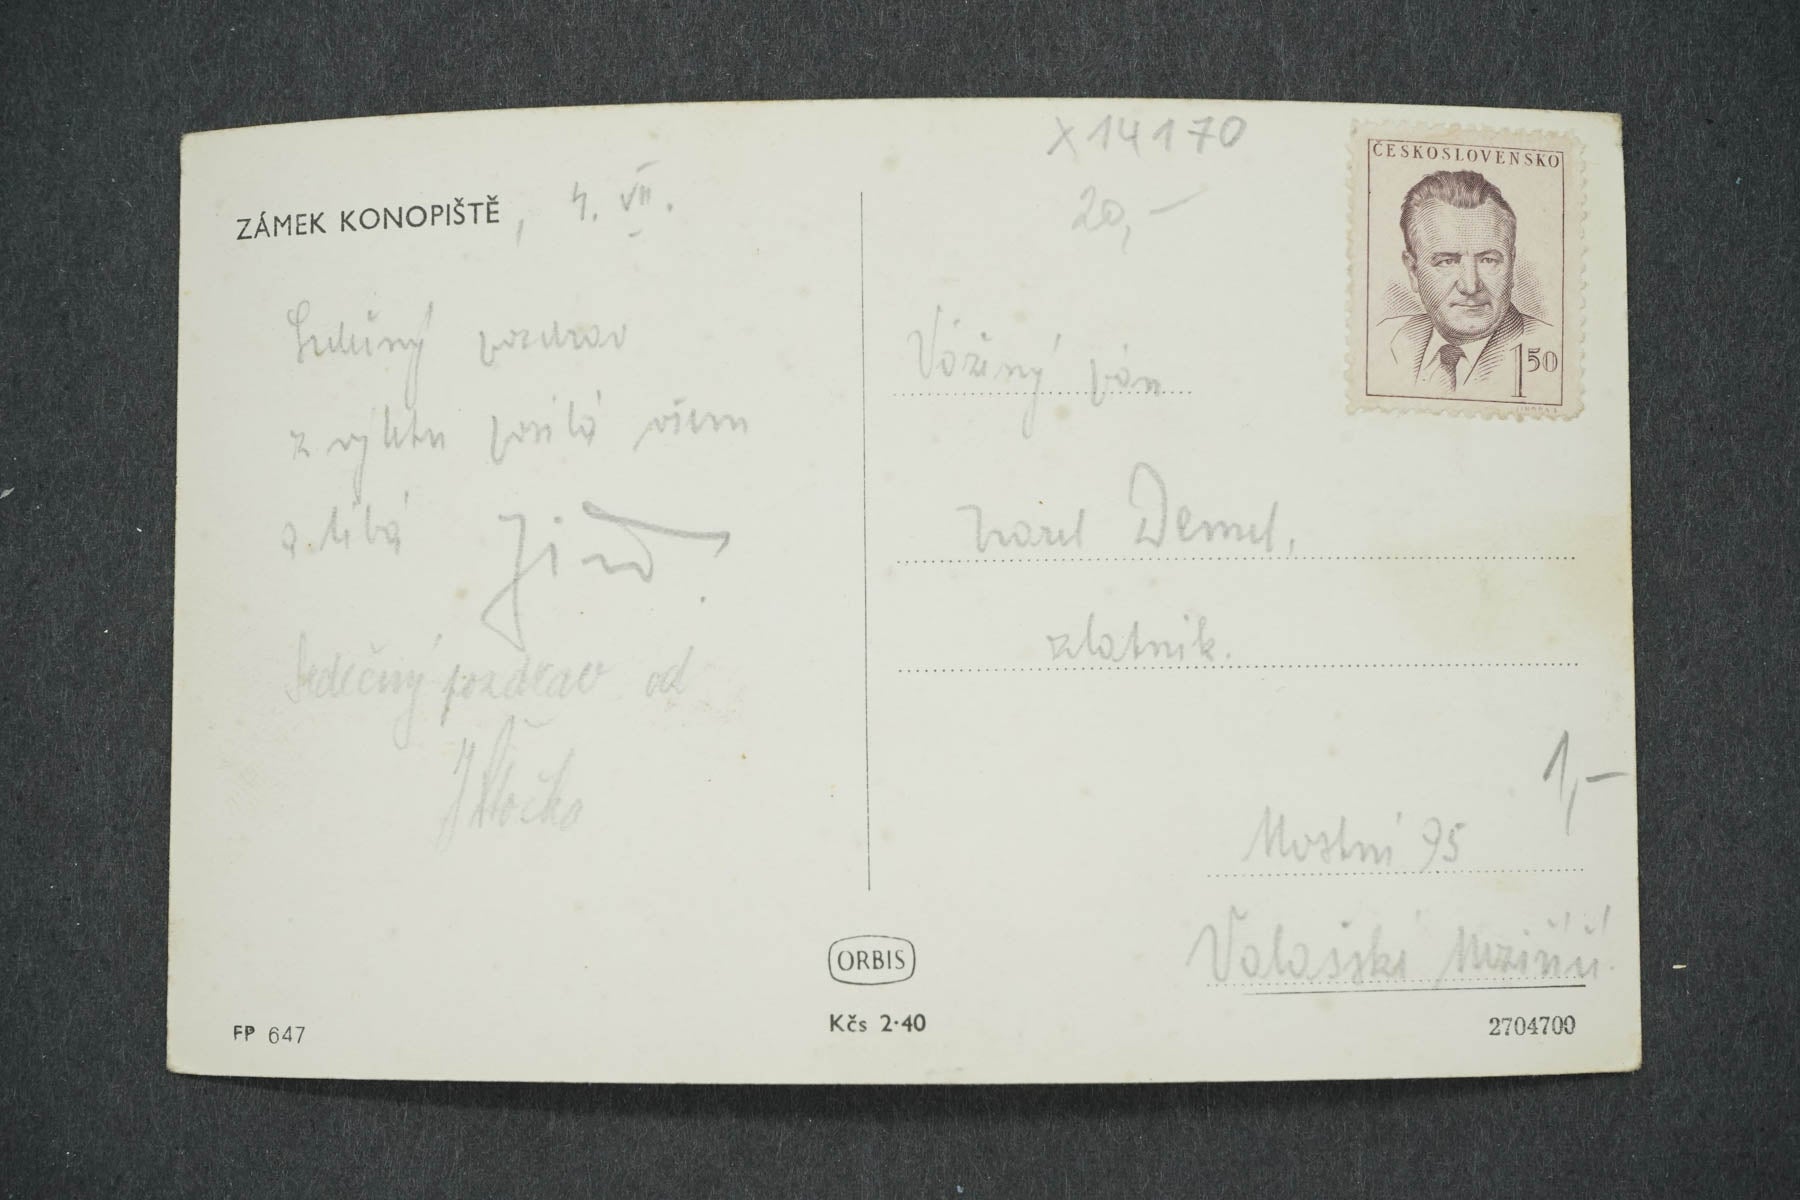 ZÁMEK KONOPIŠTĚ, 4. VII.
Srdečný pozdrav
z výletu posílá všem
a líbá
Srdečný pozdrav od
X14170
20,-
ČESKOSLOVENSKO
1 50
Vážený pán
Karel Demel,
zlatník.
1,-
Mostní 95
Valašské Meziříčí.
ORBIS
FP 647
Kčs 2·40
2704700